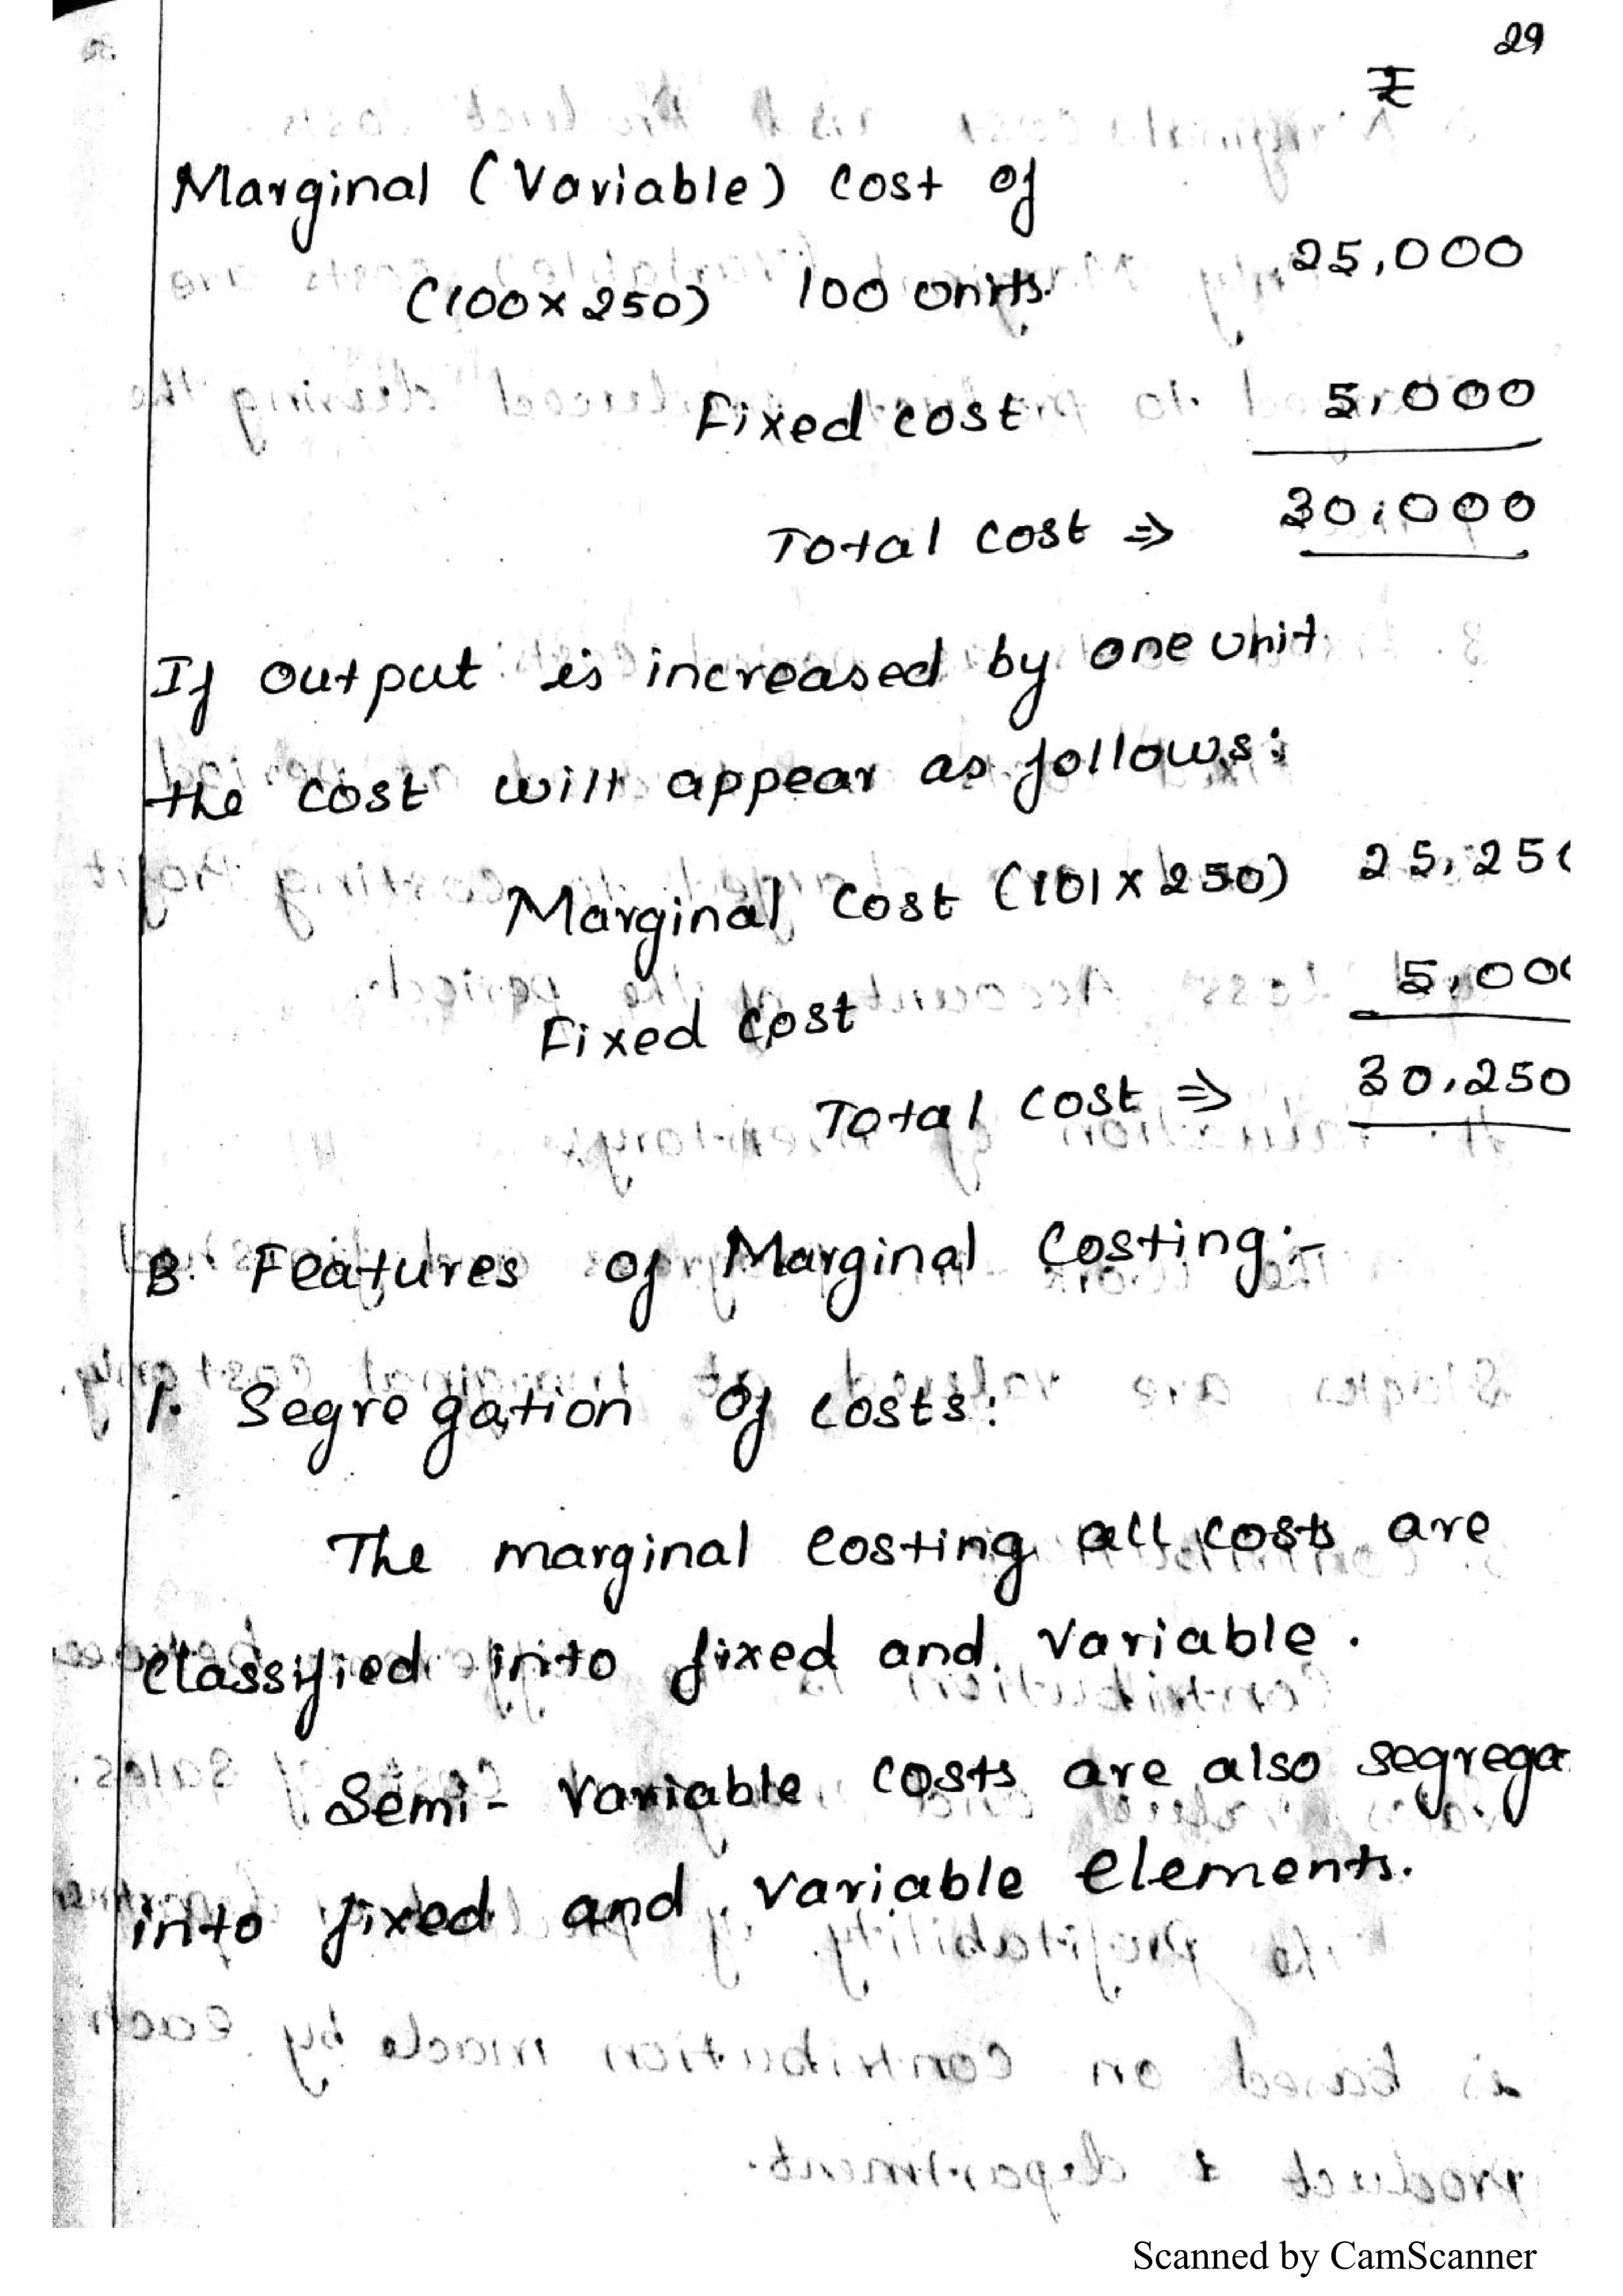 29
₹
Marginal (Variable) cost of
(100x250) 100 units. 25,000
Fixed cost 5,000
Total cost ⇒ 30,000
If output is increased by one unit
the cost will appear as follows:
Marginal cost (101x250) 25,250
Fixed cost 5,000
Total cost ⇒ 30,250
B. Features of Marginal Costing:-
1. Segregation of costs:
The marginal costing all costs are
classified into fixed and variable.
Semi-variable costs are also segrega
into fixed and variable elements.
Scanned by CamScanner